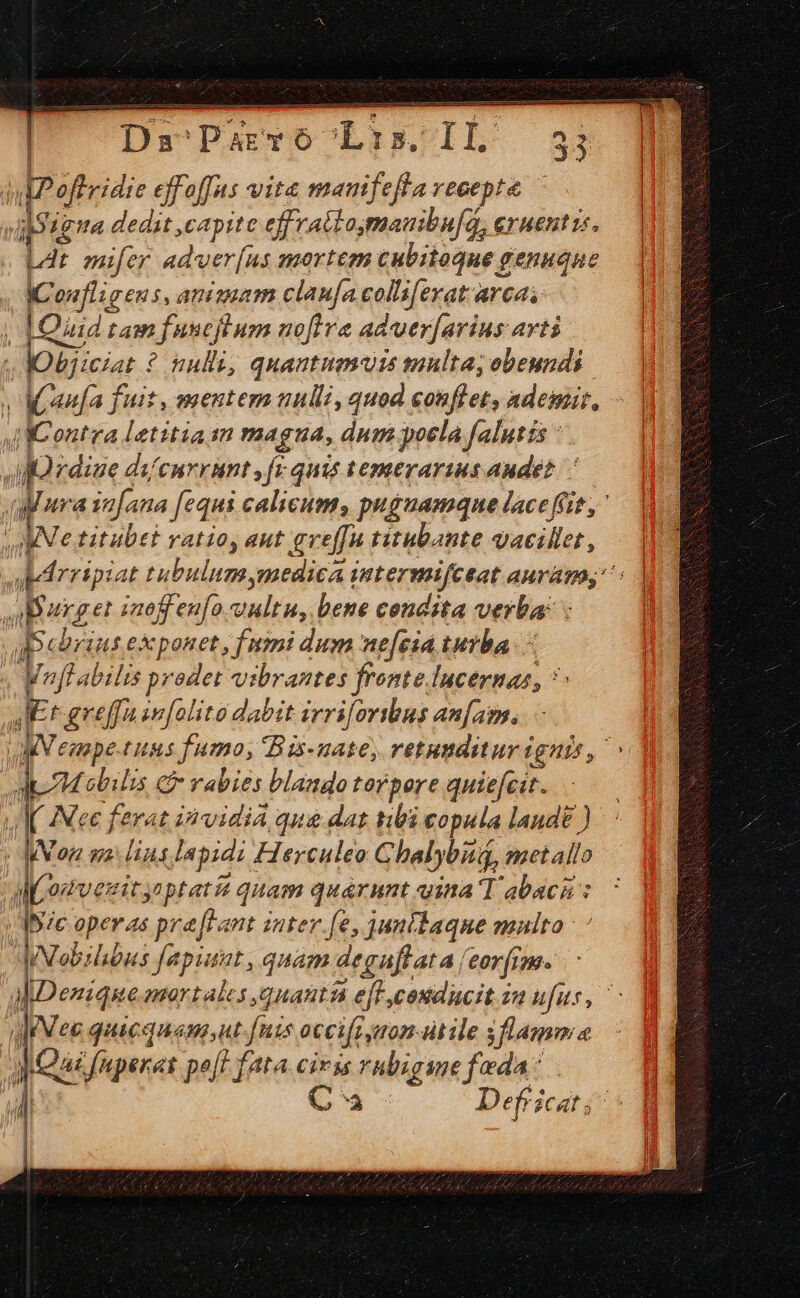 De Pæto Lib. II. 33
Postridie effossus vitæ manifesta receptæ
Signa dedit, capite effracto, manibusq́, cruentis.
At miser adversus mortem cubitoque genuque
Confligens, animam clausa colliserat arca.
Quid tam funestum nostræ adversarius arti
Objiciat? nulli, quantumvis multa, obeundi
Causa fuit, mentem nulli, quod constet, ademit,
Contra letitia in magna, dum pocla salutis
Ordine discurrunt, si quis temerarius audet
Jura insana sequi calicum, pugnamque lacessit,
Ne titubet ratio, aut gressu titubante vacillet,
Arripiat tubulum, medicâ intermisceat auram,
Surget inoffenso vultu, bene condita verba
Sobrius exponet, fumi dum nescia turba
Instabilis prodet vibrantes fronte lucernas,
Et gressu insolito dabit irrisoribus ansam.
Nempe tuus fumo, Bis-nate, retunditur ignis,
Mobilis & rabies blando torpore quiescit.
( Nec ferat invidiã quæ dat tibi copula laudẽ )
Non melius lapidi Herculeo Chalybũq́, metallo
Convenit, optatũ quam quærunt vina Tabacũ:
Sic operas præstant inter se, junctaque multo
Nobilibus sapiunt, quam degustata seorsim.
Denique mortales, quantũ est, conducit in usus,
Nec quicquam, ut suis occisis, non utile; flammæ
Qui superat post fata cinis rubigine fœda
C 3 Defricat,